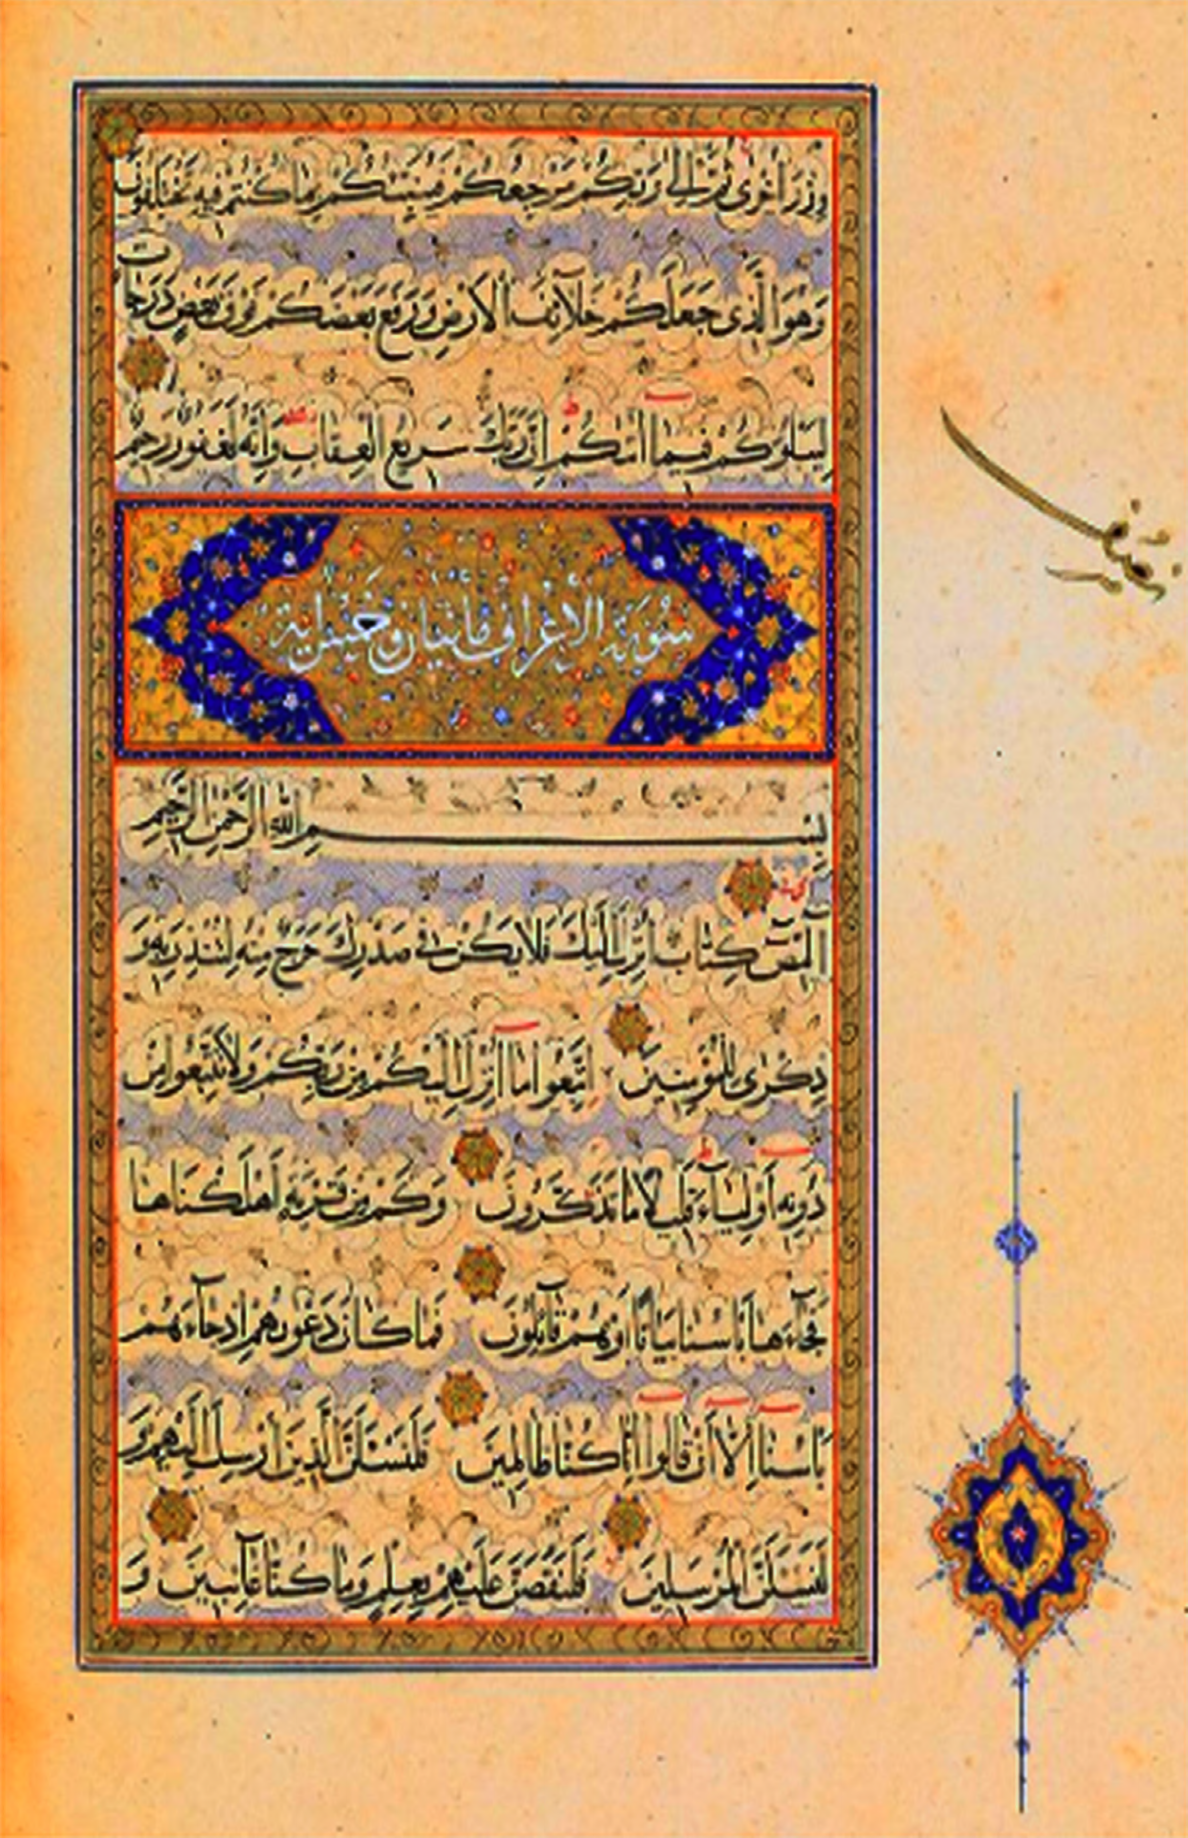 وِزْرَ أُخْرَى ثُمَّ إِلَى رَبِّكُمْ مَرْجِعُكُمْ فَيُنَبِّئُكُمْ بِمَا كُنْتُمْ فِيهِ تَخْتَلِفُونَ
وَهُوَ الَّذِى جَعَلَكُمْ خَلَآئِفَ الْاَرْضِ وَرَفَعَ بَعْضَكُمْ فَوْقَ بَعْضٍ دَرَجَاتٍ
لِيَبْلُوَكُمْ فِيمَآ اٰتٰىكُمْ اِنَّ رَبَّكَ سَرِيعُ الْعِقَابِ وَاِنَّهُ لَغَفُورٌ رَحِيمٌ
سورة الاعراف مائتان وخمس اية
بِسْمِ اللّٰهِ الرَّحْمٰنِ الرَّحِيمِ
الٓمٓصٓ كِتَابٌ اُنْزِلَ اِلَيْكَ فَلَا يَكُنْ فِى صَدْرِكَ حَرَجٌ مِنْهُ لِتُنْذِرَ بِهِ وَ
ذِكْرٰى لِلْمُؤْمِنِينَ اِتَّبِعُوا مَآ اُنْزِلَ اِلَيْكُمْ مِنْ رَبِّكُمْ وَلَا تَتَّبِعُوا مِنْ
دُونِهِ اَوْلِيَآءَ قَلِيلًا مَا تَذَكَّرُونَ وَكَمْ مِنْ قَرْيَةٍ اَهْلَكْنَاهَا
فَجَآءَهَا بَاْسُنَا بَيَاتًا اَوْ هُمْ قَآئِلُونَ فَمَا كَانَ دَعْوٰيهُمْ اِذْ جَآءَهُمْ
بَاْسُنَآ اِلَّآ اَنْ قَالُوآ اِنَّا كُنَّا ظَالِمِينَ فَلَنَسْئَلَنَّ الَّذِينَ اُرْسِلَ اِلَيْهِمْ وَ
لَنَسْئَلَنَّ الْمُرْسَلِينَ فَلَنَقُصَّنَّ عَلَيْهِمْ بِعِلْمٍ وَمَا كُنَّا غَآئِبِينَ وَ